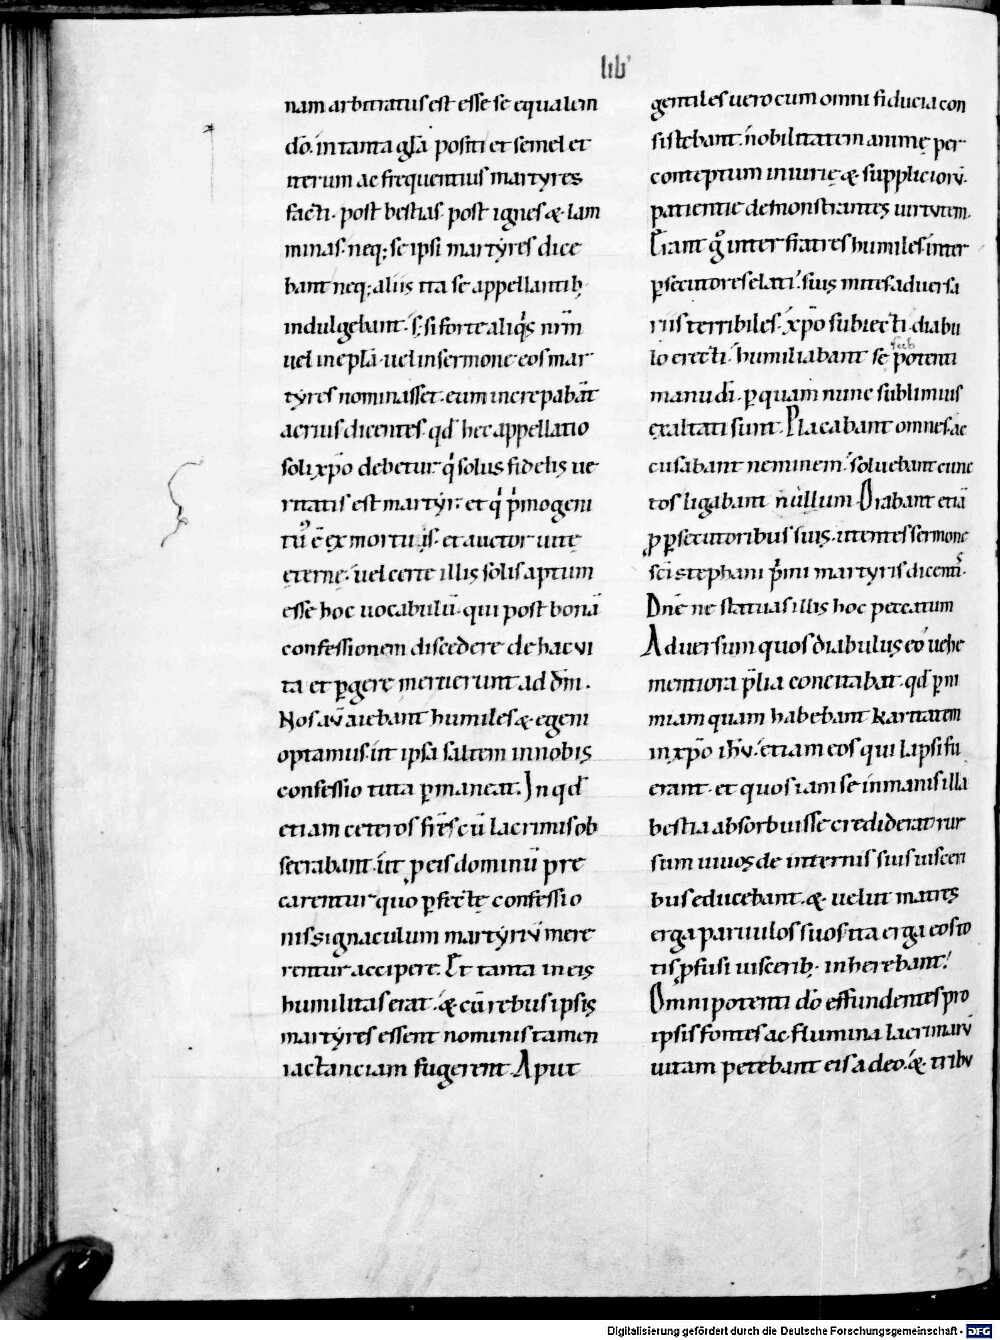 lib'
nam arbitratus est esse se equalem
dō. in tanta gl̄a positi et semel et
iterum ac frequentius martyres
facti. post bestias. post ignes & lam
minas. neq; se ipsi martyres dice
bant neq; aliis ita se appellantib;
indulgebant. s; si forte aliq̄s nr̄m
uel in epl̄a. uel in sermone eos mar
tyres nominasset. eum increpabāt
acrius dicentes. qđ hec appellatio
soli xp̄o debetur q' solus fidelis ue
ritatis est martyr. et q' p'mogeni
tus ē ex mortuis. et auctor uitę
ęternę. uel certe illis solis aptum
esse hoc uocabulū. qui post bonā
confessionem discedere de hac ui
ta et ꝑgere meruerunt ad dn̄m.
Nos aū aiebant humiles & egeni
optamus. ut ipsa saltem in nobis
confessio tuta ꝑmaneat. In qđ
etiam ceteros fr̄es cū lacrimis ob
secrabant. ut ꝓ eis dominū pre
carentur quo ꝑfectę confessio
nis signaculum martyrū mere
rentur accipere. Et tanta in eis
humilitas erat. & cū rebus ipsis
martyres essent nominis tamen
iactanciam fugerent. Aput
gentiles uero cum omni fiducia con
sistebant. nobilitatem animę per
conteptum iniurię & suppliciorū.
patientie demonstrantes uirtutem.
Erant g° inter fratres humiles. inter
ꝑsecutores elati. suis mites aduersa
riis terribiles. xp̄o subiecti. diabu
lo erecti. humiliabant se sub potenti
manu dī. ꝑ quam nunc sublimius
exaltati sunt. Placabant omnes ac
cusabant neminem. soluebant cunc
tos ligabant nullum. Orabant etiā
ꝓ ꝑsecutoribus suis. utentes sermone
sc̄i stephani p'mi martyris dicentis.
Dn̄e ne statuas illis hoc peccatum
Aduersum quos diabulus eo uehe
mentiora p̄lia concitabat. qđ ꝑni
miam quam habebant karitatem
in xp̄o ih̄u. etiam eos qui lapsi fu
erant. et quos iam se in manis illa
bestia absorbuisse crediderat rur
sum uiuos de internis suis uisceri
bus educebant. & uelut matres
erga paruulos suos ita erga eos to
tis ꝓfusi uiscerib; inherebant.
Omnipotenti dō effundentes pro
ipsis fontes ac flumina lacrimarū
uitam petebant eis a deo. & tribu
Digitalisierung gefördert durch die Deutsche Forschungsgemeinschaft - DFG